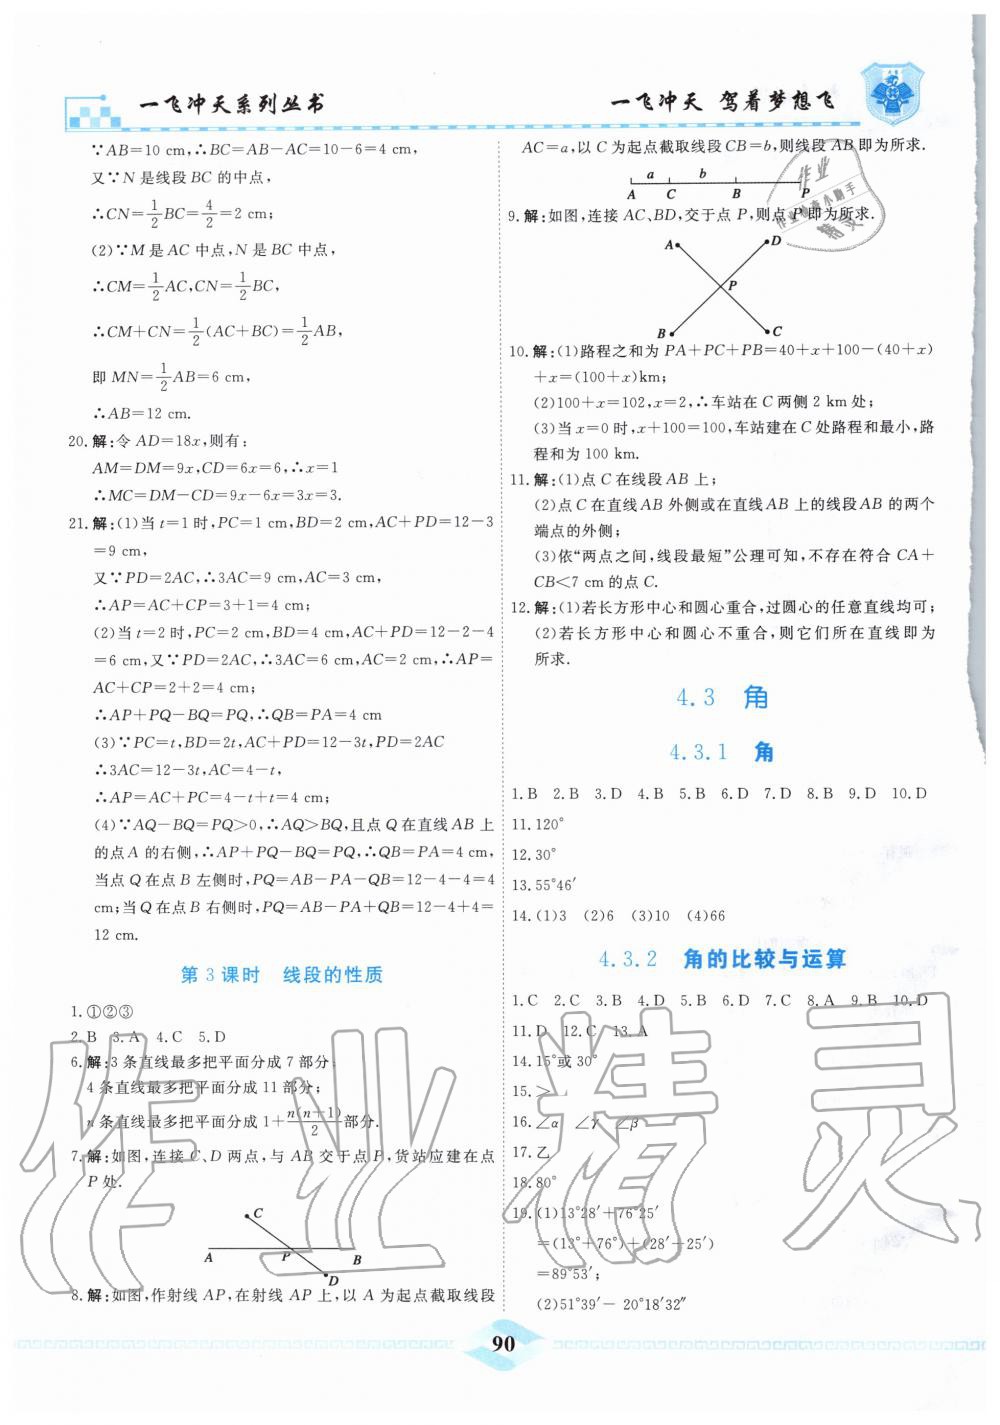 一飞冲天系列丛书
一飞冲天 驾着梦想飞
∵AB=10 cm,∴BC=AB-AC=10-6=4 cm,
又∵N是线段BC的中点,
∴CN=1/2BC=4/2=2 cm;
(2)∵M是AC中点,N是BC中点,
∴CM=1/2AC,CN=1/2BC,
∴CM+CN=1/2(AC+BC)=1/2AB,
即MN=1/2AB=6 cm,
∴AB=12 cm.
20.解:令AD=18x,则有:
AM=DM=9x,CD=6x=6,∴x=1
∴MC=DM-CD=9x-6x=3x=3.
21.解:(1)当t=1时,PC=1 cm,BD=2 cm,AC+PD=12-3
=9 cm,
又∵PD=2AC,∴3AC=9 cm,AC=3 cm,
∴AP=AC+CP=3+1=4 cm;
(2)当t=2时,PC=2 cm,BD=4 cm,AC+PD=12-2-4
=6 cm,又∵PD=2AC,∴3AC=6 cm,AC=2 cm,∴AP=
AC+CP=2+2=4 cm;
∴AP+PQ-BQ=PQ,∴QB=PA=4 cm
(3)∵PC=t,BD=2t,AC+PD=12-3t,PD=2AC
∴3AC=12-3t,AC=4-t,
∴AP=AC+PC=4-t+t=4 cm;
(4)∵AQ-BQ=PQ>0,∴AQ>BQ,且点Q在直线AB上
的点A的右侧,∴AP+PQ-BQ=PQ,∴QB=PA=4 cm,
当点Q在点B左侧时,PQ=AB-PA-QB=12-4-4=4
cm;当Q在点B右侧时,PQ=AB-PA+QB=12-4+4=
12 cm.
第3课时 线段的性质
1.①②③
2.B 3.A 4.C 5.D
6.解:3条直线最多把平面分成7部分;
4条直线最多把平面分成11部分;
n条直线最多把平面分成1+n(n+1)/2部分.
7.解:如图,连接C、D两点,与AB交于点P,货站应建在点
P处.
C
A P B
D
8.解:如图,作射线AP,在射线AP上,以A为起点截取线段
AC=a,以C为起点截取线段CB=b,则线段AB即为所求.
a b
A C B P
9.解:如图,连接AC、BD,交于点P,则点P即为所求.
A D
P
B C
10.解:(1)路程之和为PA+PC+PB=40+x+100-(40+x)
+x=(100+x)km;
(2)100+x=102,x=2,∴车站在C两侧2 km处;
(3)当x=0时,x+100=100,车站建在C处路程和最小,路
程和为100 km.
11.解:(1)点C在线段AB上;
(2)点C在直线AB外侧或在直线AB上的线段AB的两个
端点的外侧;
(3)依“两点之间,线段最短”公理可知,不存在符合CA+
CB<7 cm的点C.
12.解:(1)若长方形中心和圆心重合,过圆心的任意直线均可;
(2)若长方形中心和圆心不重合,则它们所在直线即为
所求.
4.3 角
4.3.1 角
1.B 2.B 3.D 4.B 5.B 6.D 7.D 8.B 9.D 10.D
11.120°
12.30°
13.55°46′
14.(1)3 (2)6 (3)10 (4)66
4.3.2 角的比较与运算
1.C 2.C 3.B 4.D 5.B 6.D 7.C 8.A 9.B 10.D
11.D 12.C 13.A
14.15°或30°
15.>
16.∠α ∠γ ∠β
17.乙
18.80°
19.(1)13°28′+76°25′
=(13°+76°)+(28′+25′)
=89°53′;
(2)51°39′-20°18′32″
90
作业
作业检查小助手
精灵
作业精灵